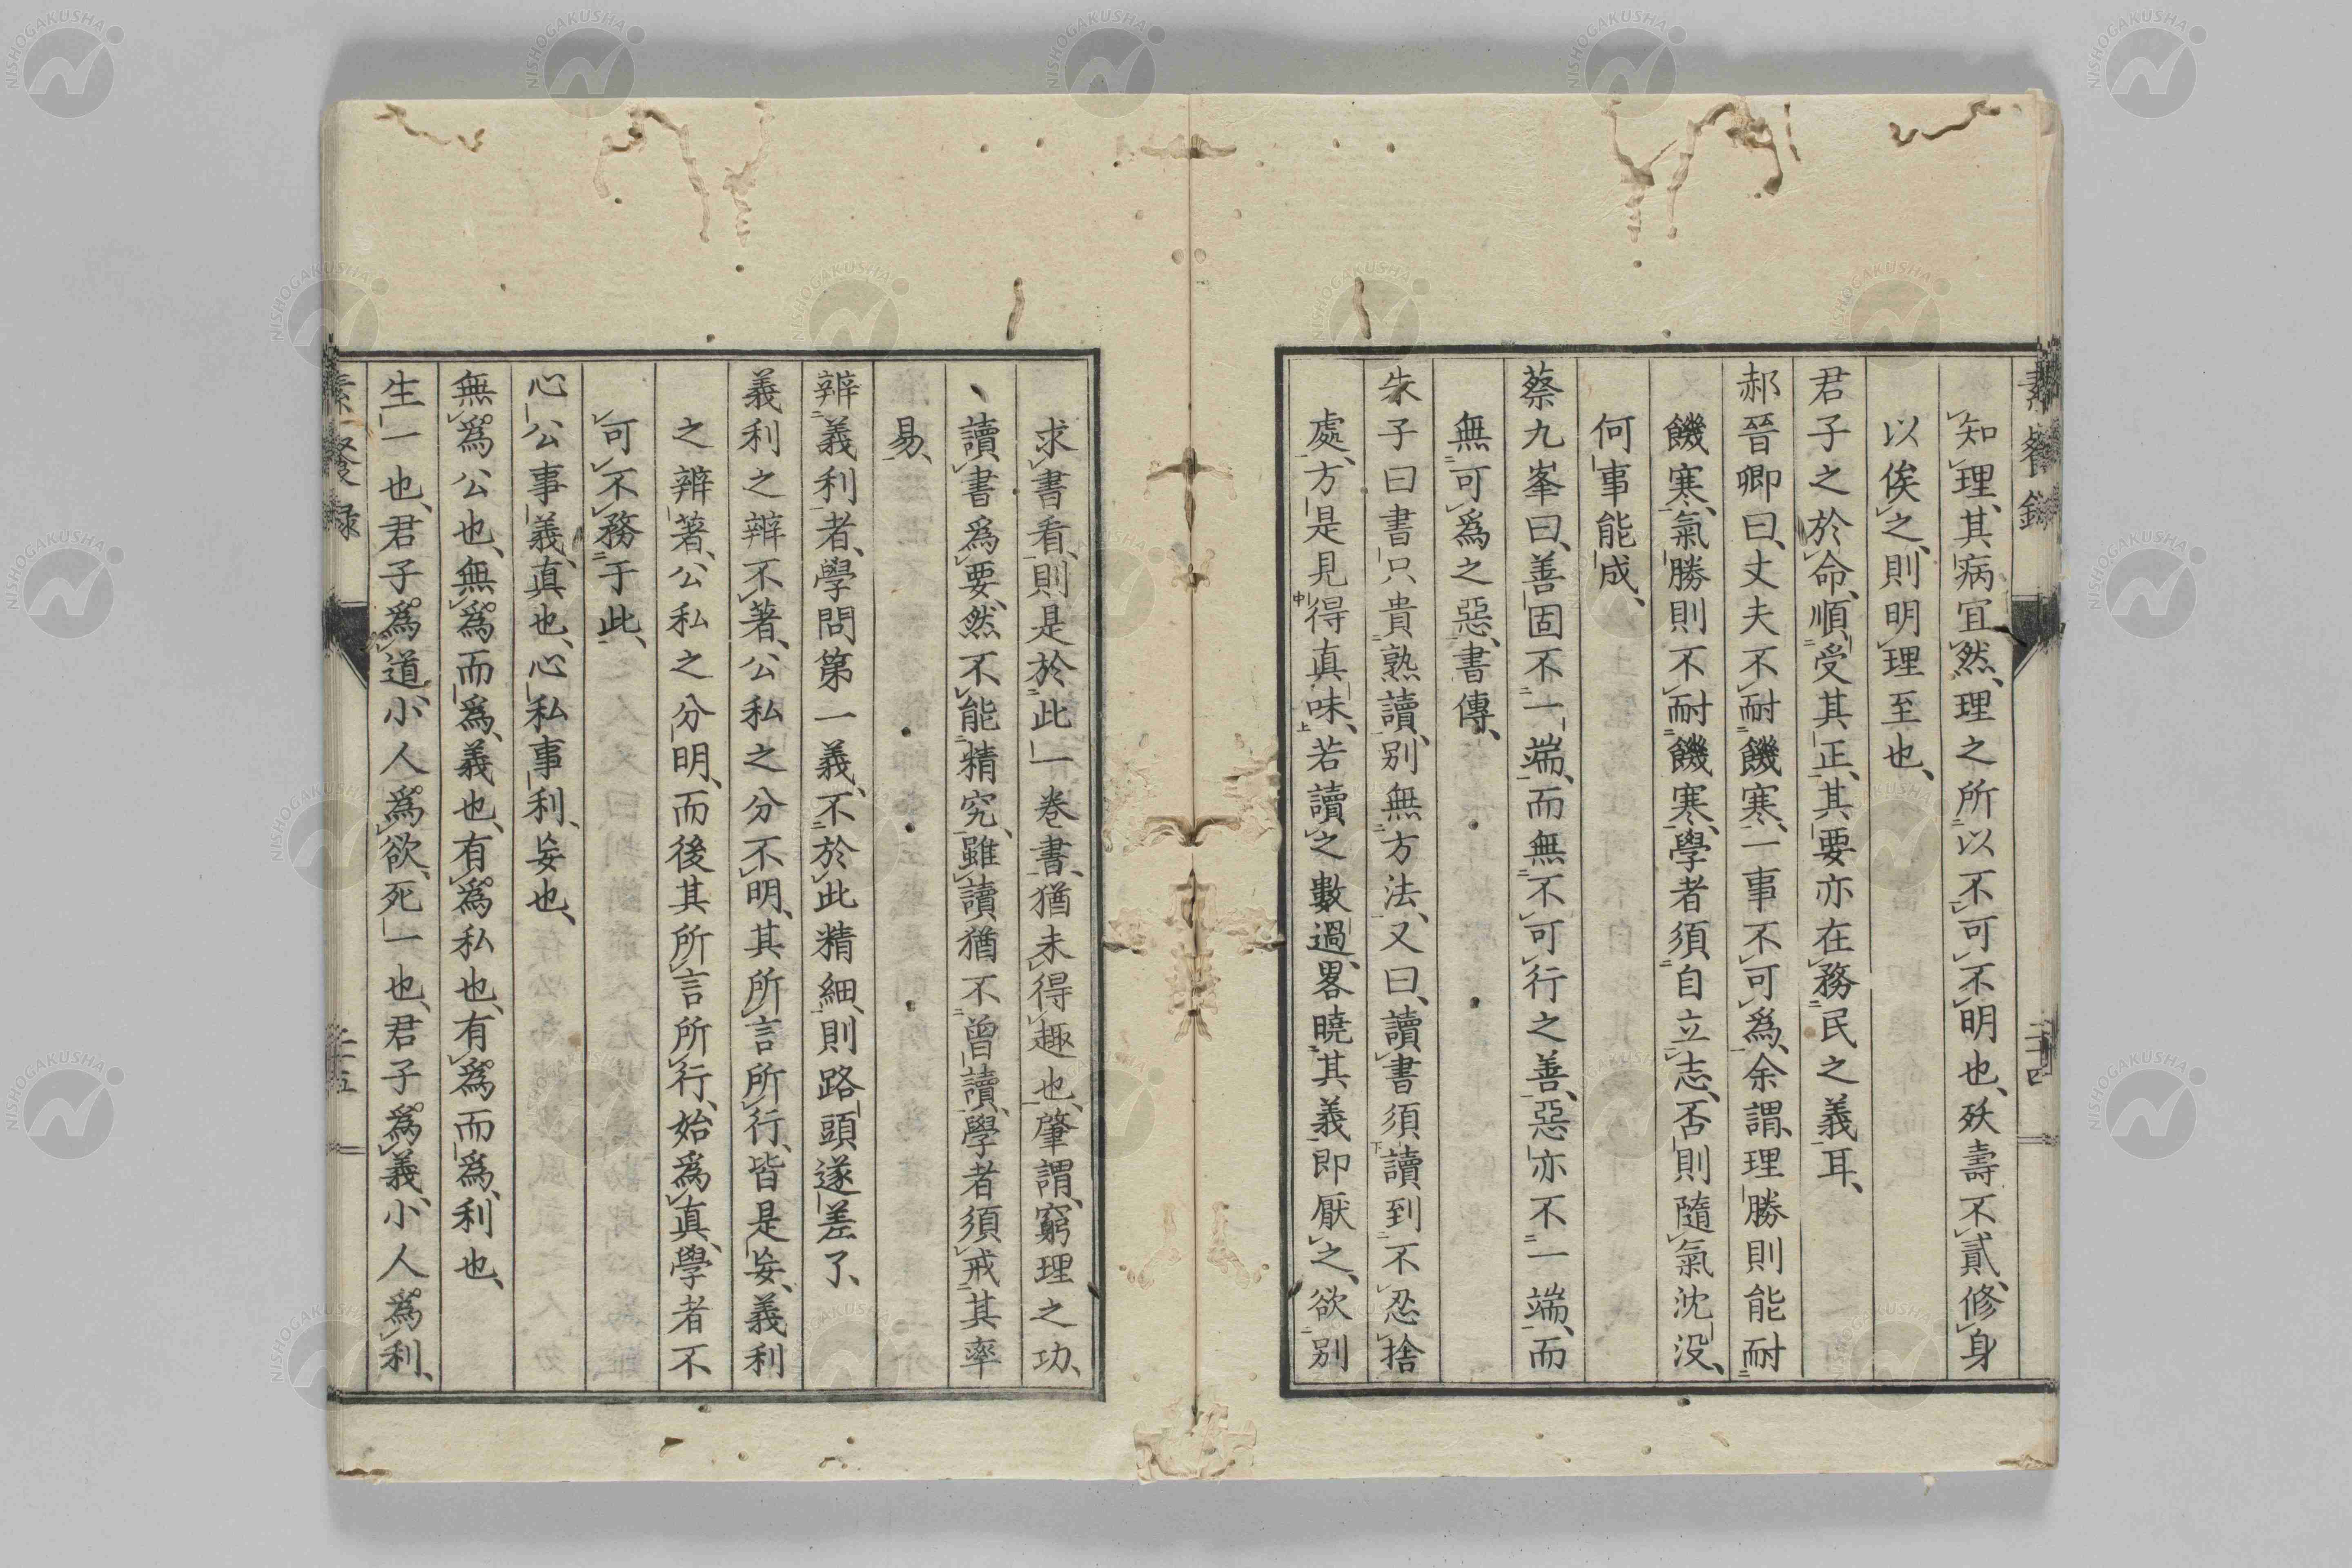 素餐錄
二十四
知理、其病宜然、理之所以不可不明也、殀壽不貳、修身
以俟之、則明理至也、
君子之於命、順受其正、其要亦在務民之義耳、
郝晉卿曰、丈夫不耐饑寒、一事不可爲、余謂、理勝則能耐
饑寒、氣勝則不耐饑寒、學者須自立志、否則隨氣沈没、
何事能成、
蔡九峯曰、善固不一端、而無不可行之善、惡亦不一端、而
無可爲之惡、書傳、
朱子曰書只貴熟讀、别無方法、又曰、讀書須讀到不忍捨
處、方是見得真味、若讀之數過、畧曉其義即厭之、欲别
求書看、則是於此一卷書、猶未得趣也、肇謂、窮理之功、
讀書爲要、然不能精究、雖讀猶不曾讀、學者須戒其率
易、
辨義利者、學問第一義、不於此精細、則路頭遂差了、
義利之辨不著、公私之分不明、其所言所行、皆是妄、義利
之辨著、公私之分明、而後其所言所行、始爲真、學者不
可不務于此、
心公事義、真也、心私事利、妄也、
無爲公也、無爲而爲、義也、有爲私也、有爲而爲、利也、
生一也、君子爲道、小人爲欲、死一也、君子爲義、小人爲利、
素餐錄
二十五
NISHOGAKUSHA